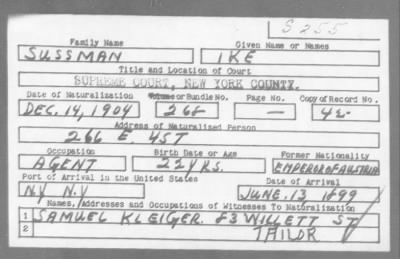 S 255
Family Name Given Name or Names
SUSSMAN IKE
Title and Location of Court
SUPREME COURT, NEW YORK COUNTY.
Date of Naturalization Volume or Bundle No. Page No. Copy of Record No.
DEC. 14, 1904 268 — 42
Address of Naturalized Person
266 E. 4 ST
Occupation Birth Date or Age Former Nationality
AGENT 22 YRS. EMPEROR OF AUSTRIA
Port of Arrival in the United States Date of Arrival
N.Y. N.Y JUNE. 13 1899
Names, Addresses and Occupations of Witnesses To Naturalization
1 SAMUEL KLEIGER. 83 WILLETT ST
2 TAILOR